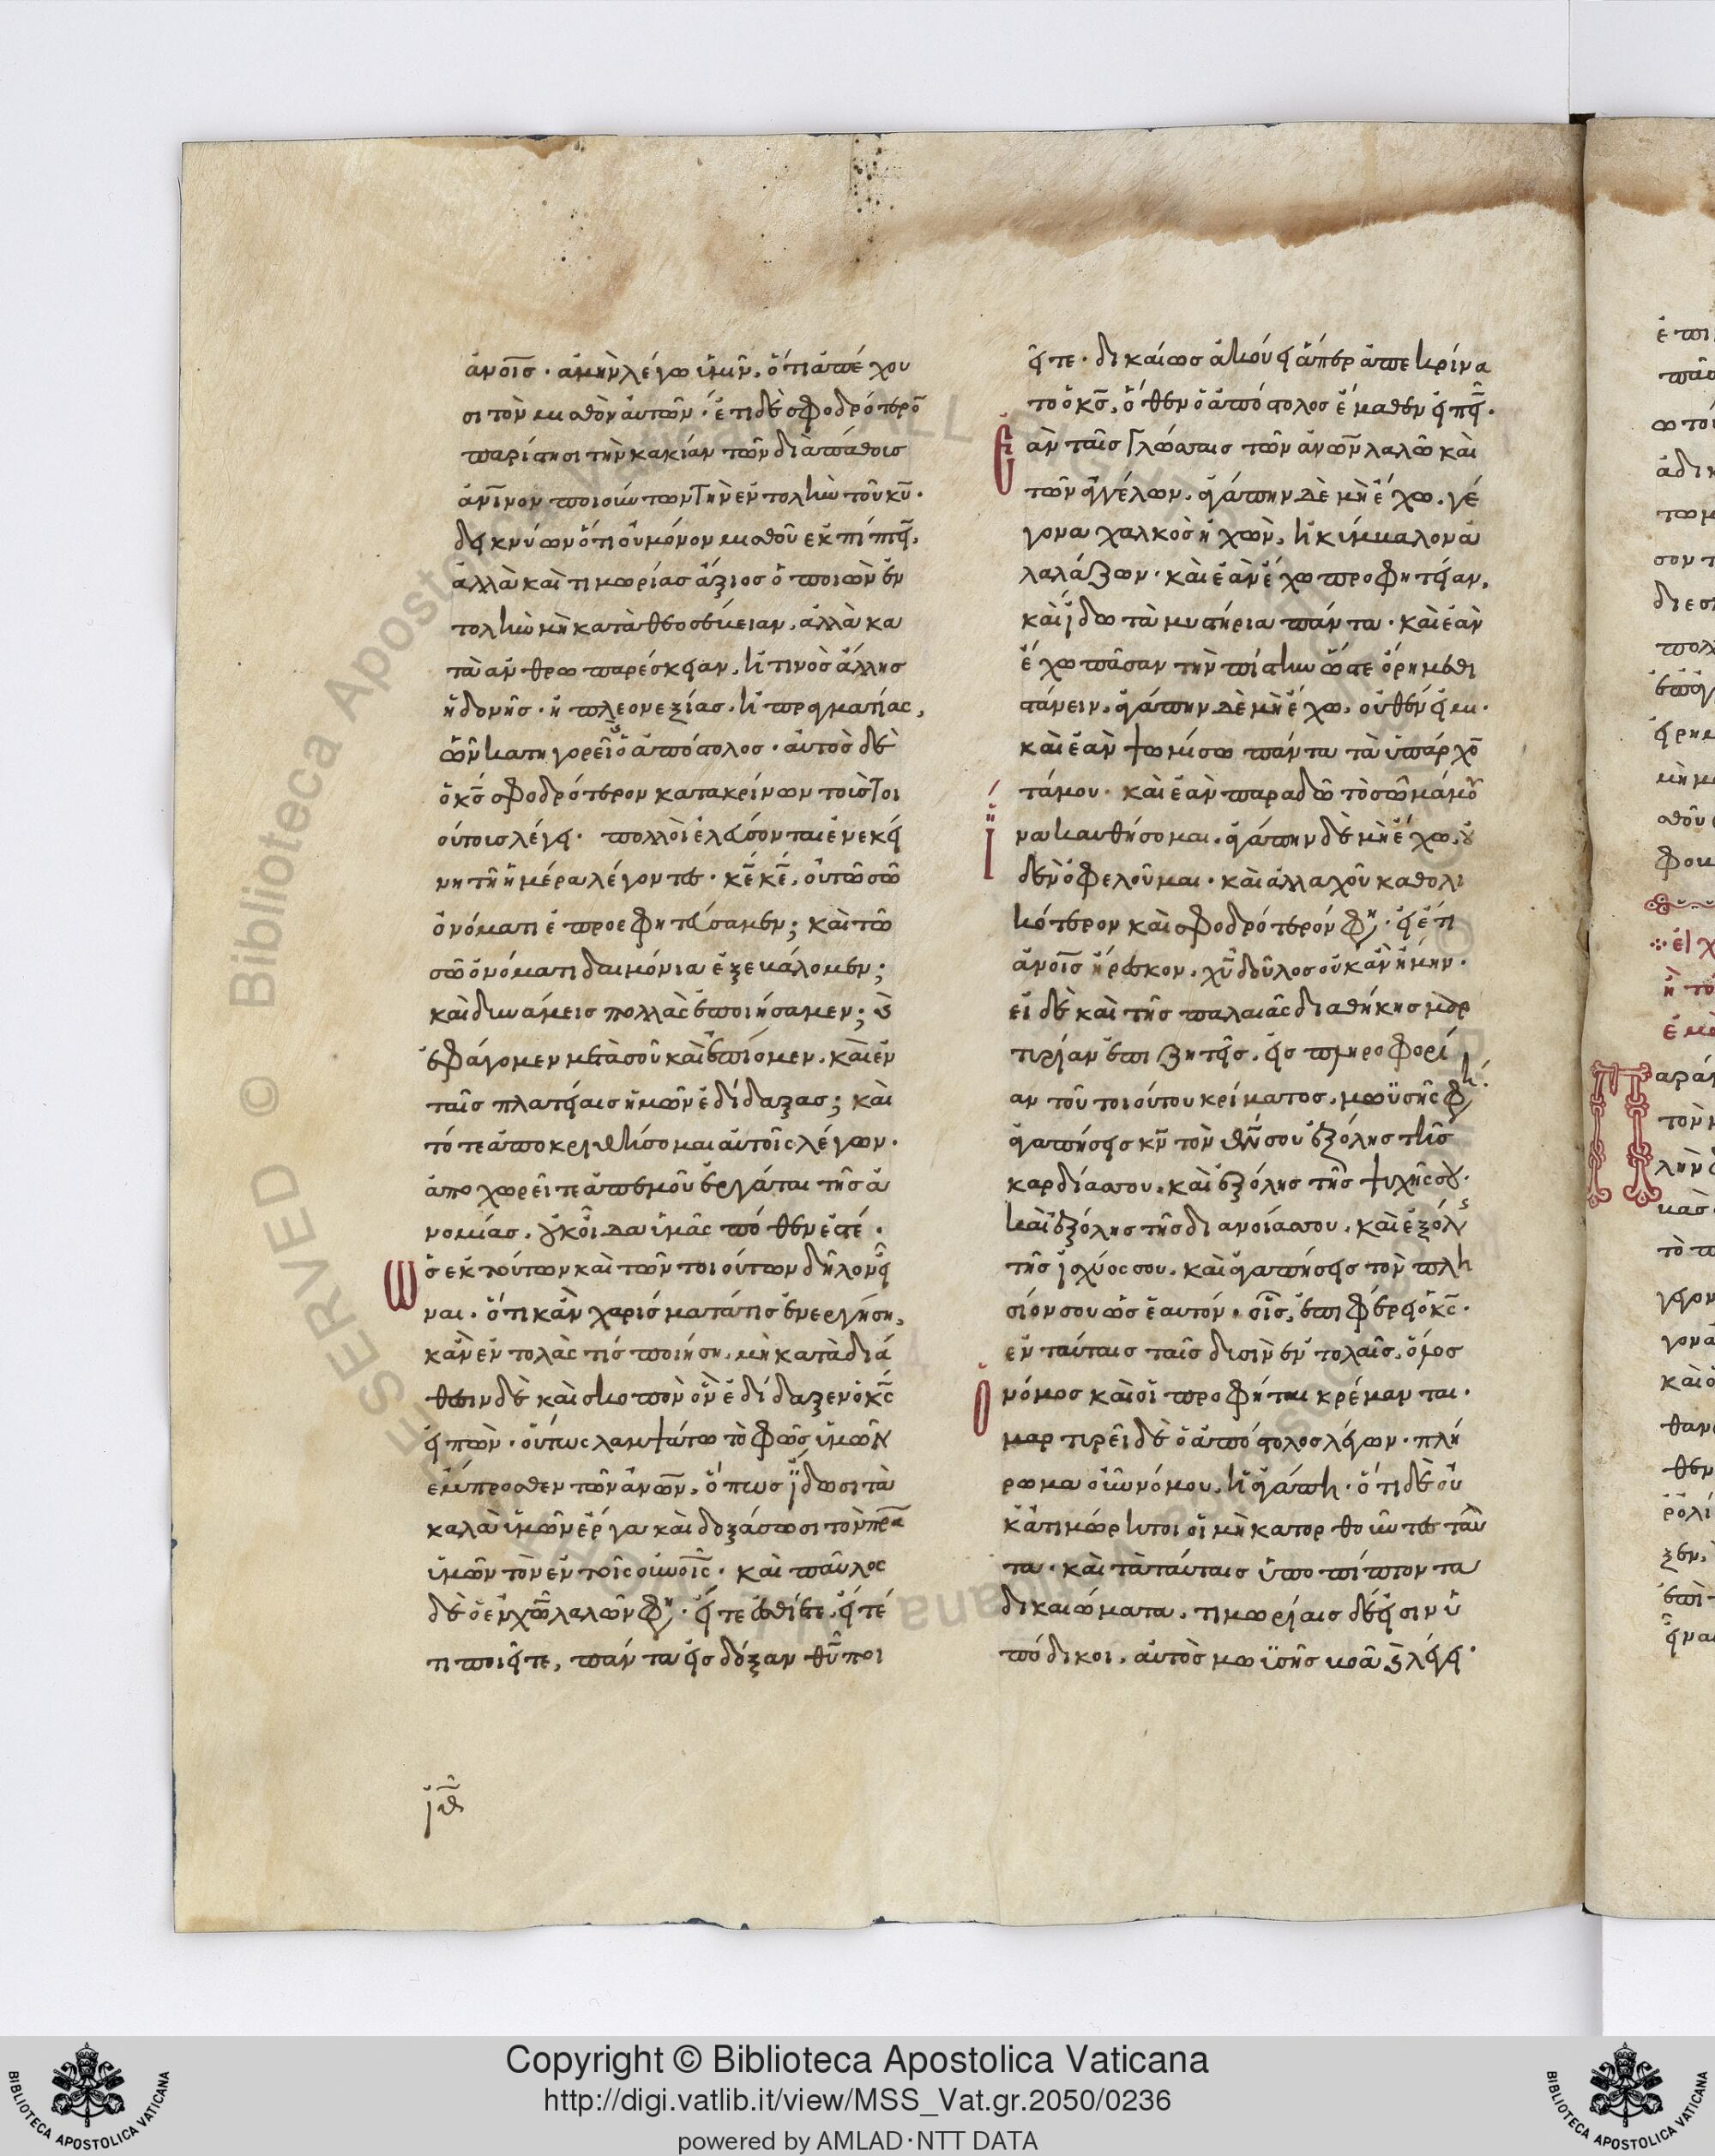 ἀνοῖς· ἀμὴν λέγω ὑμῖν, ὅτι ἀπέχου
σι τὸν μισθὸν αὐτῶν· ἔτι δὲ σφοδρότερο̄
παρίστησι τὴν κακίαν τῶν διὰ πάθοις
ἀνῖνον ποιούντων τὴν ἐντολὴν τοῦ κῡ·
δεικνύων ὅτι οὐ μόνον μισθοῦ ἐκπίπτει,
ἀλλὰ καὶ τιμωρίας ἄξιος ὁ ποιῶν ἐν
τολὴν μὴ κατὰ θεοσέβειαν, ἀλλὰ κα
τὰ ἀνθρωπαρέσκειαν, ἤ τινος ἄλλης
ἡδονῆς· ἢ πλεονεξίας, ἢ πραγματίας,
ὧν κατηγορεῖ ὁ ἀπόστολος· αὐτὸς δὲ
ὁ κς̄ σφοδρότερον κατακρίνων τοὺς τοι
ούτοις λέγει· πολλοὶ ἐλεύσονται ἐν ἐκεί
νη τῆ ἡμέρα λέγοντες· κε̄ κε̄, οὐ τῶ σῶ
ὀνόματι ἐπροεφητεύσαμεν; καὶ τῶ
σῶ ὀνόματι δαιμόνια ἐξεβάλομεν;
καὶ δυνάμεις πολλὰς ἐποιήσαμεν; καὶ
ἐφάγομεν μετὰ σοῦ καὶ ἐπίομεν, καὶ ἐν
ταῖς πλατείαις ἡμῶν ἐδίδαξας; καὶ
τότε ἀποκριθήσομαι αὐτοῖς λέγων·
ἀποχωρεῖτε ἀπ' ἐμοῦ ἐργάται τῆς ἀ
νομίας, οὐκ οἶδα ὑμᾶς πόθεν ἐστέ·
ὥς ἐκ τούτων καὶ τῶν τοιούτων δῆλον εἶ
ναι· ὅτι κἂν χαρίσματά τις ἐνεργήση,
κἂν ἐντολάς τις ποιήση, μὴ κατὰ διά
θεσιν δὲ καὶ σκοπὸν ὃν ἐδίδαξεν ὁ κς̄
εἰπών· οὕτως λαμψάτω τὸ φῶς ὑμῶν
ἔμπροσθεν τῶν ἀνων̄, ὅπως ἴδωσι τὰ
καλὰ ὑμῶν ἔργα καὶ δοξάσωσι τὸν πρ̄α
ὑμῶν τὸν ἐν τοῖς οὐνοῖς· καὶ παῦλος
δὲ ὁ ἐν χω̄ λαλῶν φη· εἴτε ἐσθίετε, εἴτέ
τι ποιεῖτε, πάντα εἰς δόξαν θῡ ποι
ιθ
εῖτε· δικαίως ἀκούει ἅπερ ἀπεκρίνα
το ὁ κς̄, ὅθεν ὁ ἀπόστολος ἔμαθεν εἰπεῖ·
Ἐὰν ταῖς γλώσσαις τῶν ἀνων̄ λαλῶ καὶ
τῶν ἀγγέλων, ἀγάπην δὲ μὴ ἔχω, γέ
γονα χαλκὸς ἠχῶν, ἢ κύμβαλον ἀ
λαλάζων· καὶ ἐὰν ἔχω προφητείαν,
καὶ ἴδω τὰ μυστήρια πάντα· καὶ ἐὰν
ἔχω πᾶσαν τὴν πίστιν ὥστε ὄρη μεθι
στάνειν, ἀγάπην δὲ μὴ ἔχω, οὐθέν εἰμι·
καὶ ἐὰν ψωμίσω πάντα τὰ ὑπάρχο̄
τά μου· καὶ ἐὰν παραδῶ τὸ σῶμά μου
ἵνα καυθήσομαι, ἀγάπην δὲ μὴ ἔχω, οὐ
δὲν ὀφελοῦμαι· καὶ ἀλλαχοῦ καθολι
κότερον καὶ σφοδρότερόν φη· εἰ ἔτι
ἀνοῖς ἤρεσκον, χῡ δοῦλος οὐκ ἂν ἤμην·
εἰ δὲ καὶ τῆς παλαιᾶς διαθήκης μαρ
τυρίαν ἐπιζητεῖς, εἰς πληροφορί
αν τοῦ τοιούτου κρίματος, μωϋσῆς φη·
ἀγαπήσεις κν̄ τὸν θν̄ σου ἐξ ὅλης τῆς
καρδίας σου, καὶ ἐξ ὅλης τῆς ψυχῆς σου·
καὶ ἐξ ὅλης τῆς διανοίας σου, καὶ ἐξ ὅλης
τῆς ἰσχύος σου, καὶ ἀγαπήσεις τὸν πλη
σίον σου ὡς ἑαυτόν· οἷς, ἐπιφέρει ὁ κς̄·
ἐν ταύταις ταῖς δυσὶν ἐντολαῖς, ὅλος
ὁ νόμος καὶ οἱ προφῆται κρέμανται·
μαρτυρεῖ δὲ ὁ ἀπόστολος λέγων· πλή
ρωμα οὖν νόμου, ἡ ἀγάπη· ὅτι δὲ οὐ
κ ἀτιμώρητοι οἱ μὴ κατορθοῦντες ταῦ
τα· καὶ τὰ ταύταις ὑποπίπτοντα
δικαιώματα, τιμωρίαις δέ εἰσιν ὑ
πόδικοι, αὐτὸς μωϋσῆς βοᾶ καὶ λέγει·
Copyright © Biblioteca Apostolica Vaticana
http://digi.vatlib.it/view/MSS_Vat.gr.2050/0236
powered by AMLAD·NTT DATA
BIBLIOTECA APOSTOLICA VATICANA
BIBLIOTECA APOSTOLICA VATICANA